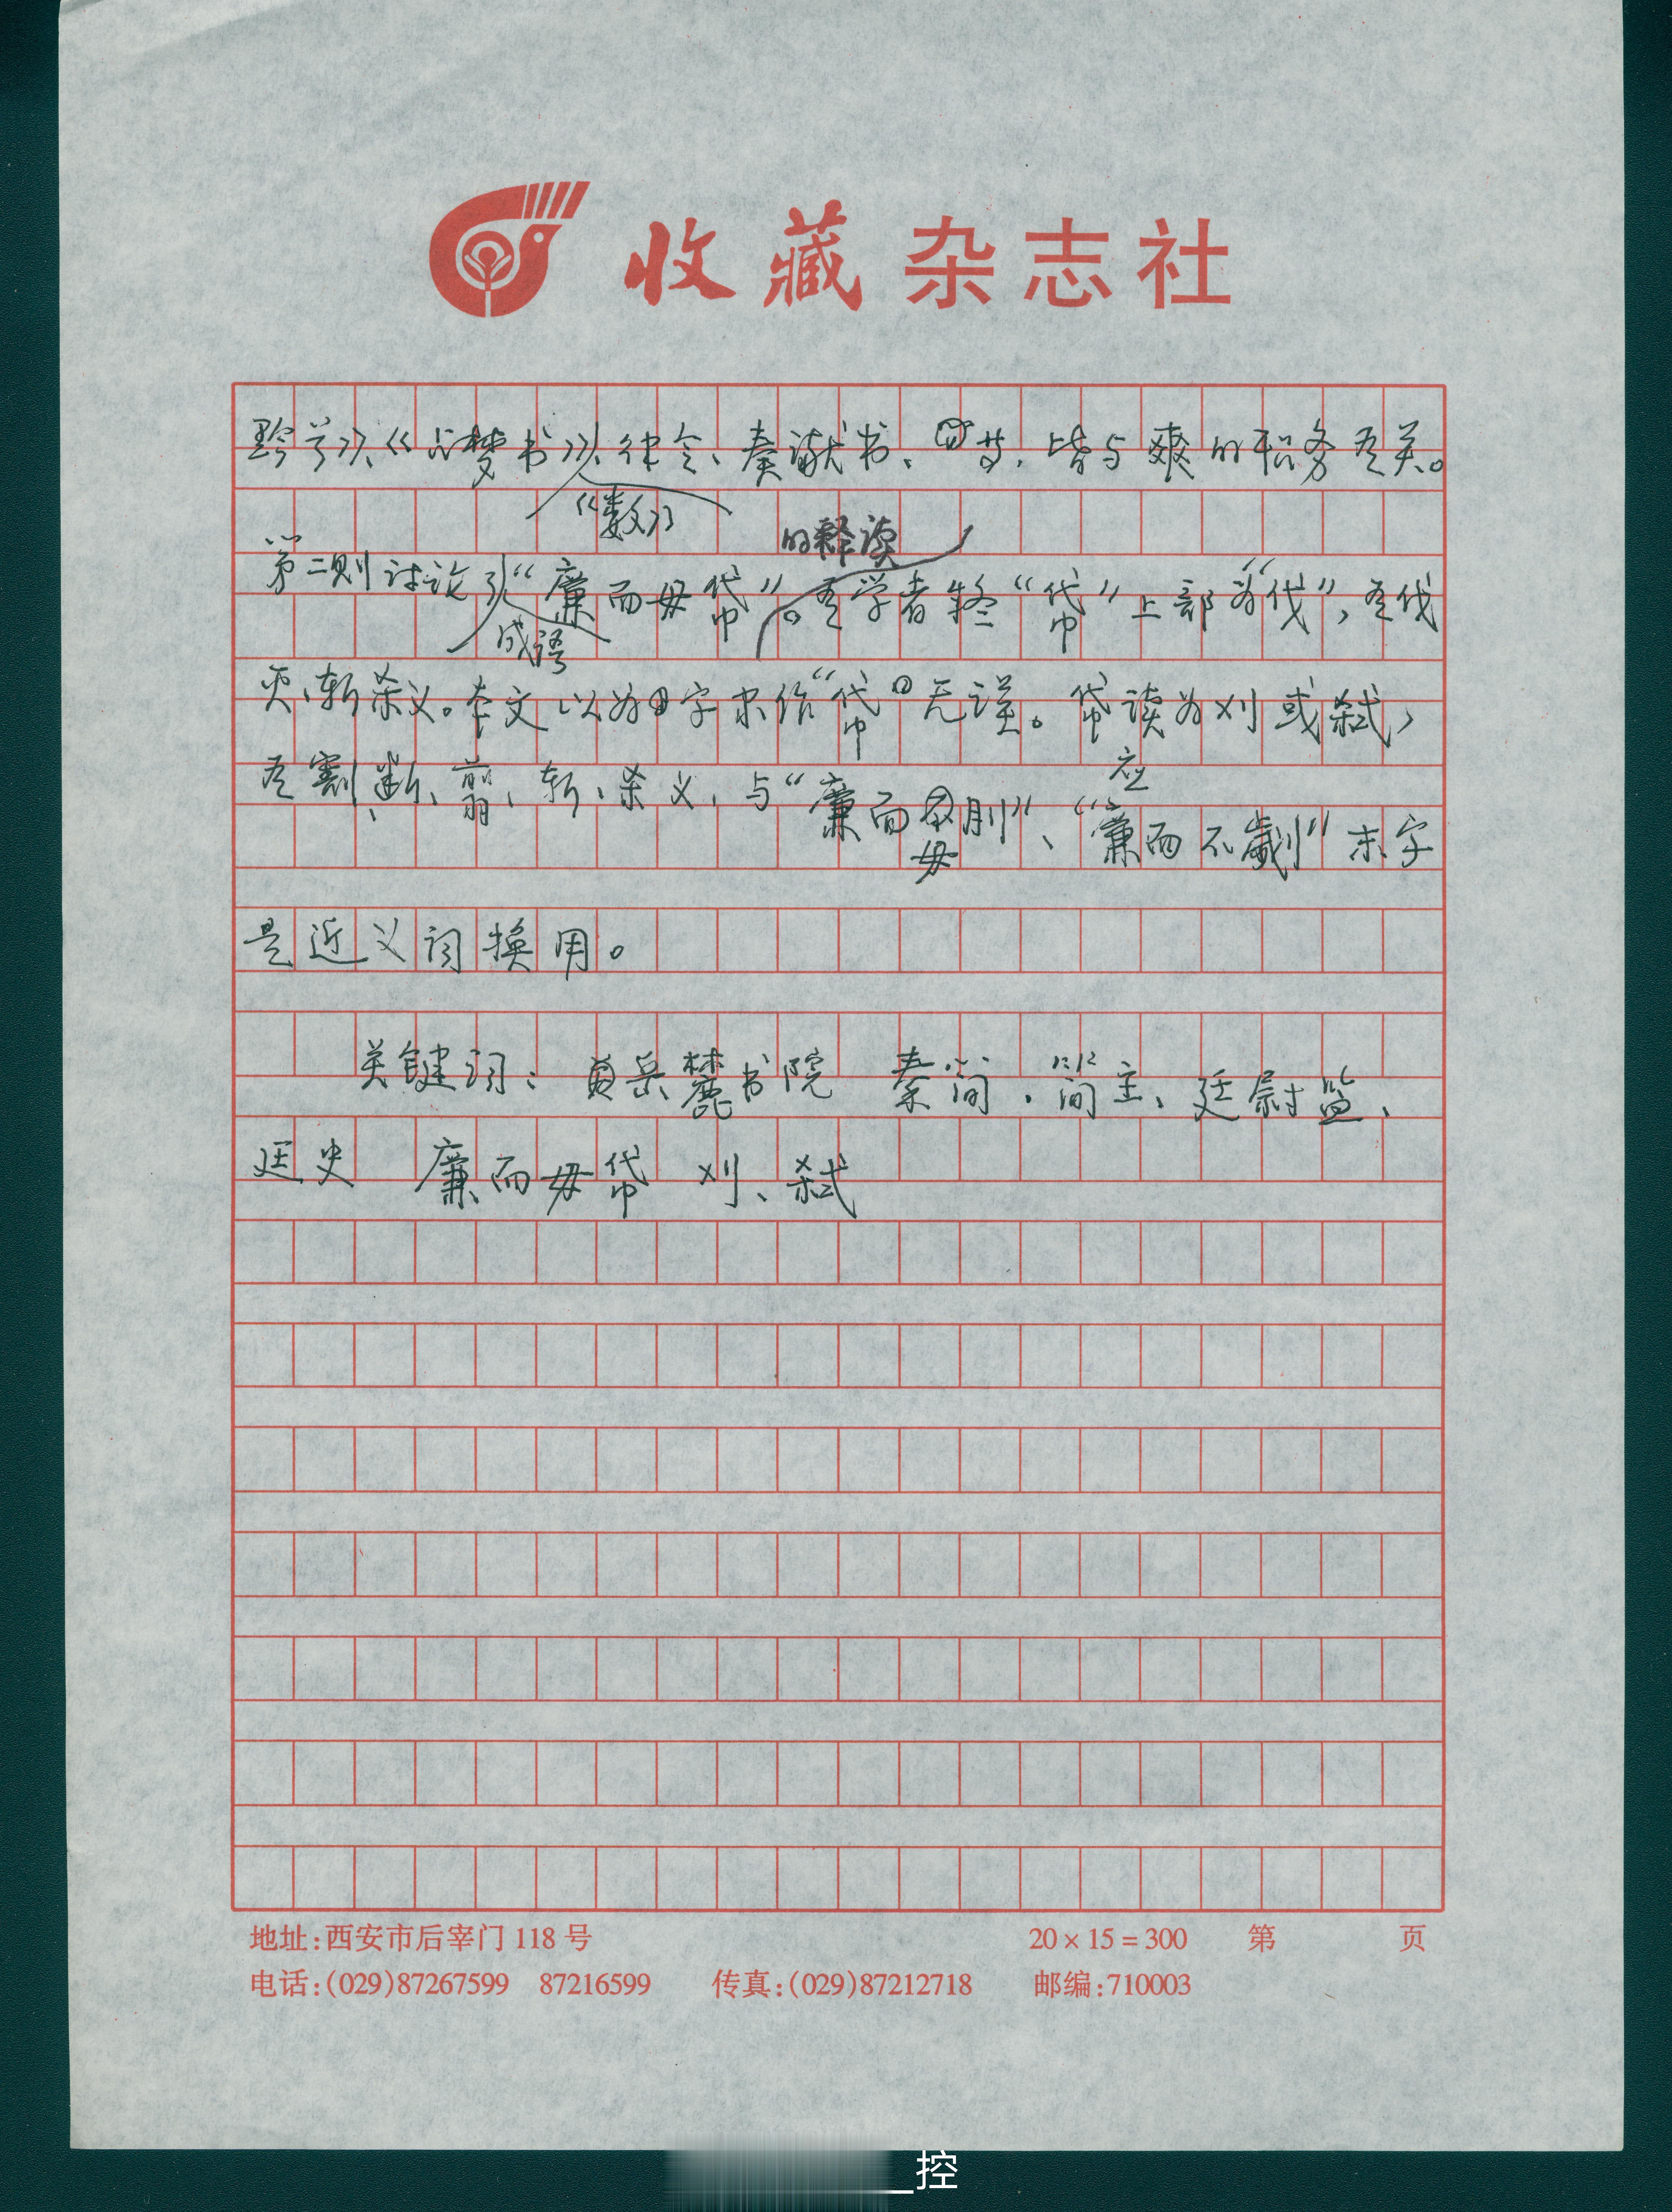 收藏杂志社
黔首》、《占梦书》、《数》律令、奏谳书、等,皆与爽的职务有关。
第二则讨论成语“廉而毋帒”的释读。有学者释“帒”上部为“伐”,有伐
灭、斩杀义。本文以为字末作“帒”无误。帒读为刈或弑,
有割、断、翦、斩、杀义,与“廉而毋刖”、“廉而不劌”末字应
是近义词换用。
关键词:岳麓书院 秦简、简主、廷尉监、
廷史 廉而毋帒 刈、弑
地址:西安市后宰门118号 20×15=300 第 页
电话:(029)87267599 87216599 传真:(029)87212718 邮编:710003
控